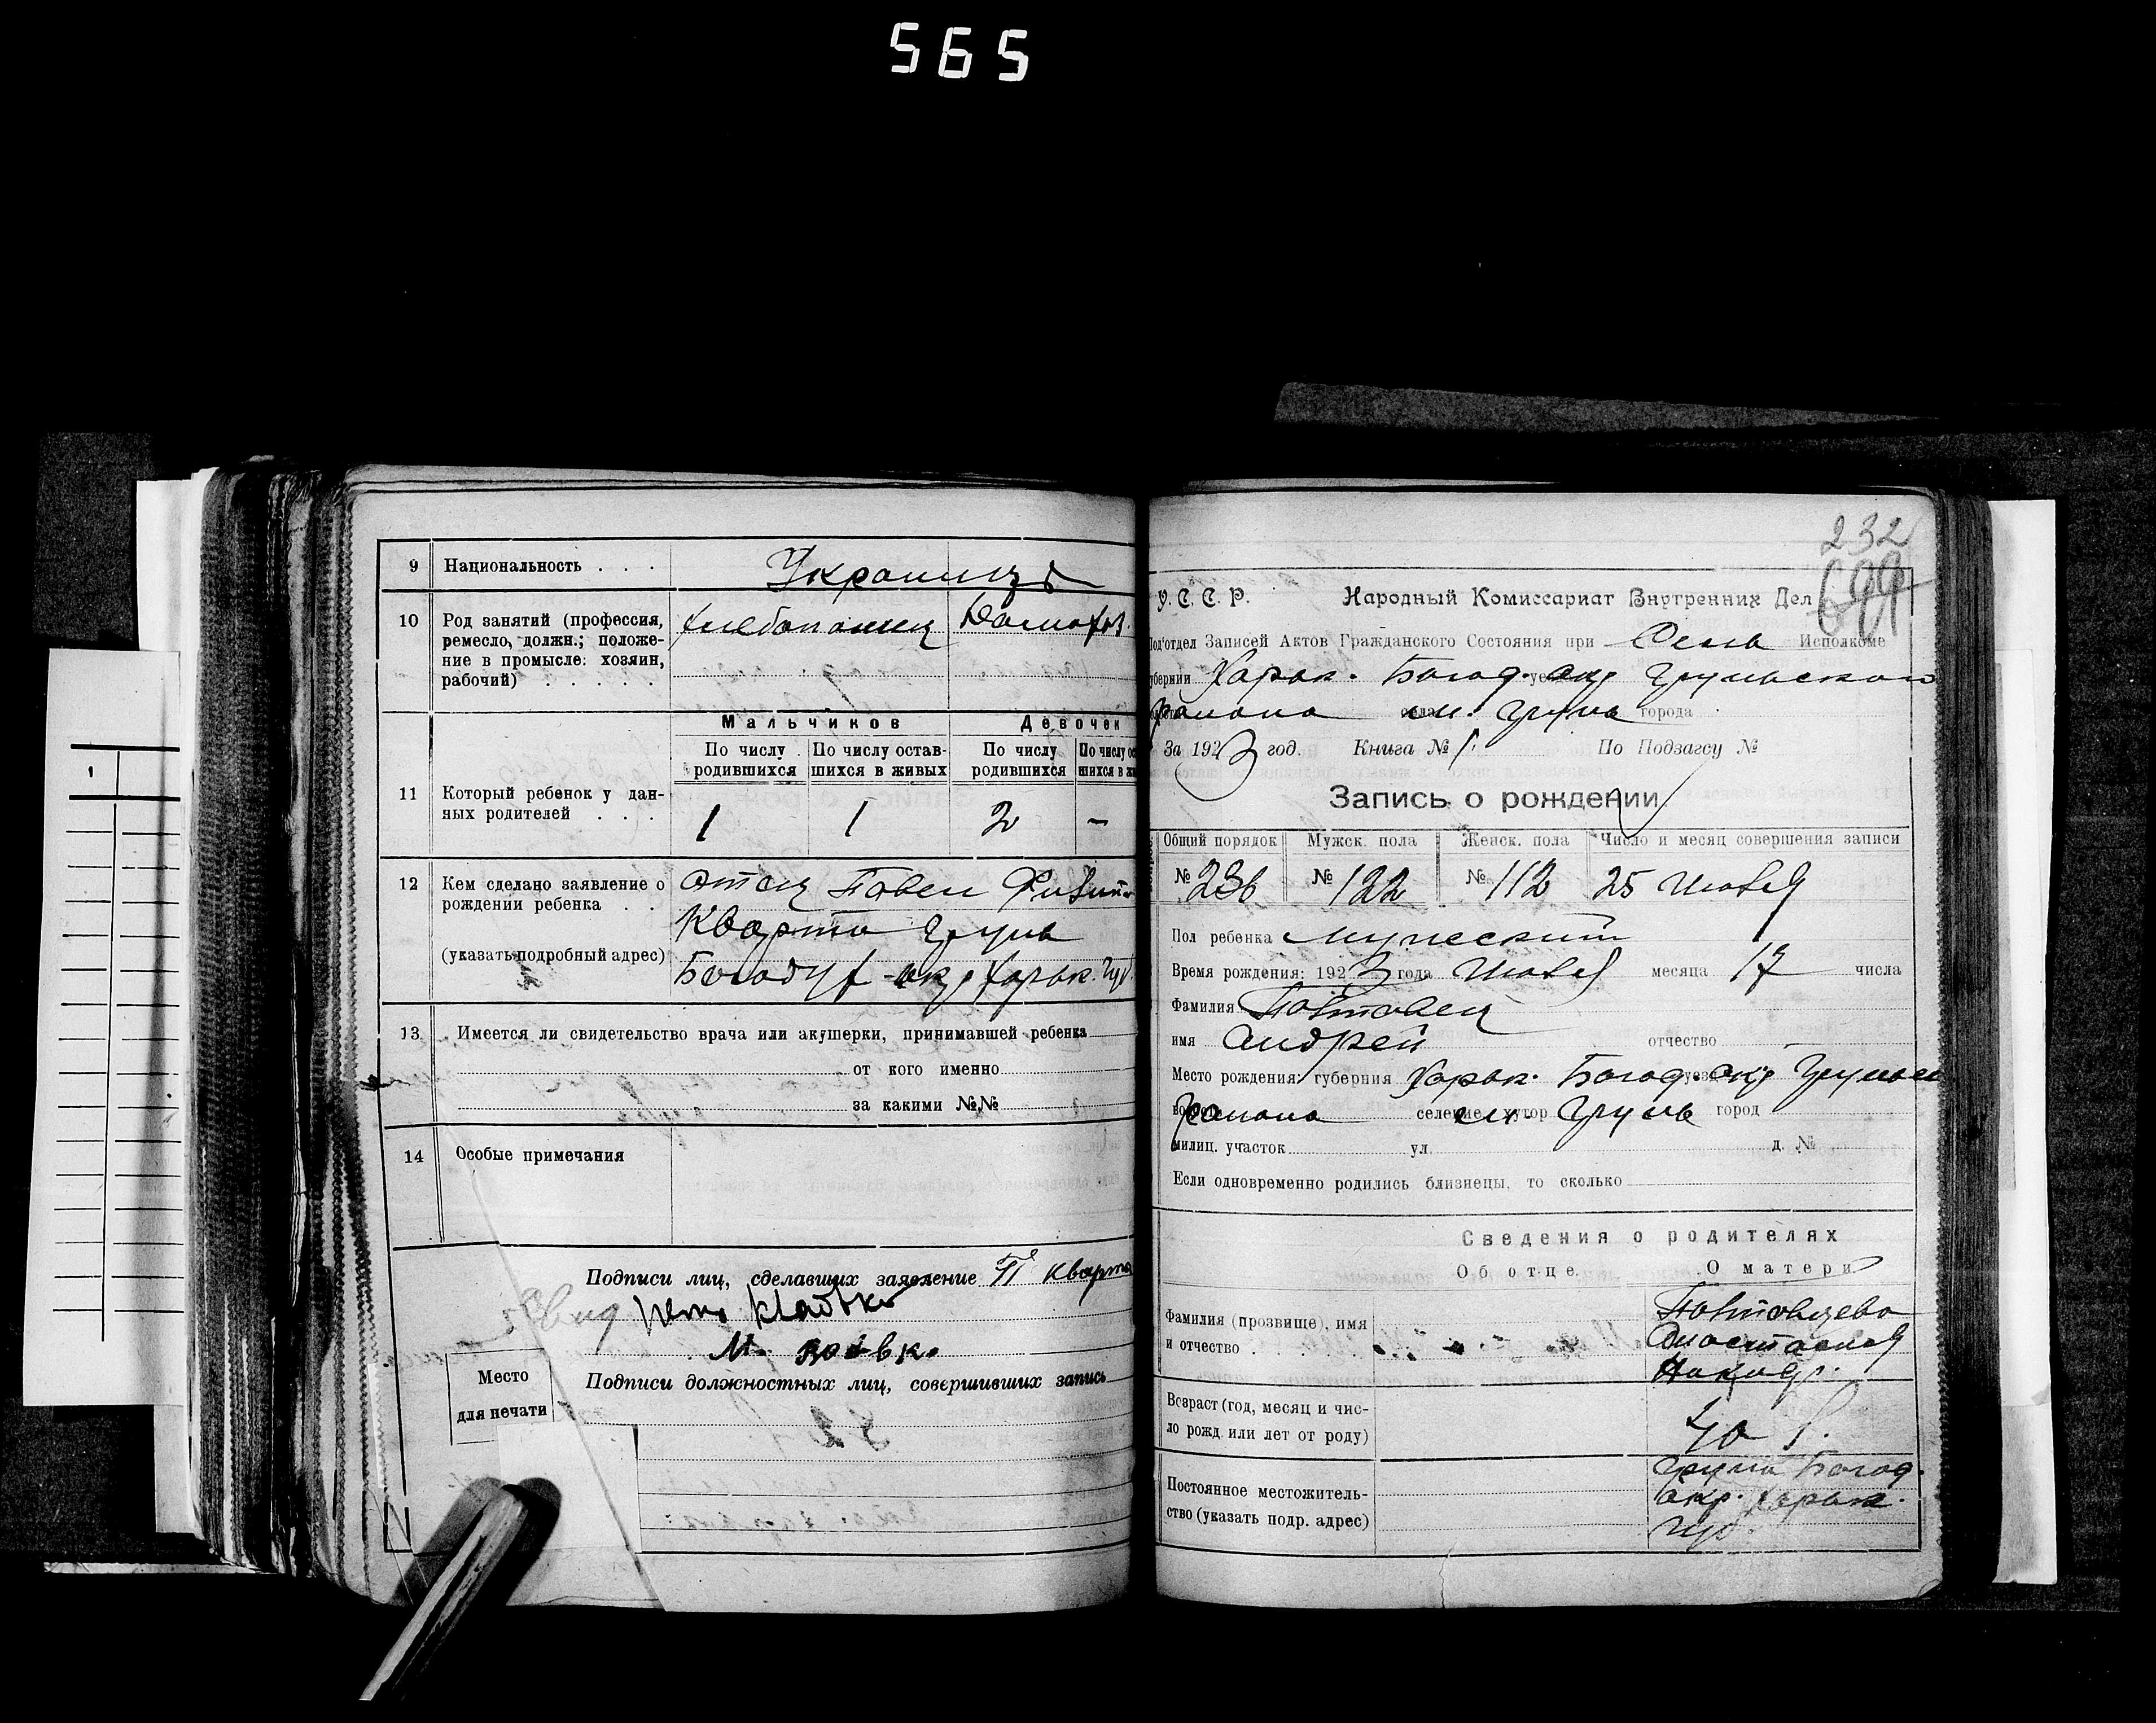 565
9 Национальность . . . Украинцы
10 Род занятий (профессия, ремесло, должн.; положение в промысле: хозяин, рабочий) . . . . . хлебопашец Домохоз.
Мальчиков Девочек
По числу родившихся По числу оставшихся в живых По числу родившихся По числу ос шихся в жи
11 Который ребенок у данных родителей . . . 1 1 2 –
12 Кем сделано заявление о рождении ребенка . . отец Павел
(указать подробный адрес) Кварта Грунь
Богодух окр Харьк. Губ
13 Имеется ли свидетельство врача или акушерки, принимавшей ребенка
от кого именно
за какими №№
14 Особые примечания
Подписи лиц, сделавших заявление П Кварта
М.
Место для печати
Подписи должностных лиц, совершивших запись
232
699
У. С. С. Р. Народный Комиссариат Внутренних Дел
Под'отдел Записей Актов Гражданского Состояния при Сель Исполкоме
губернии Харьк. Богод. окр Груньского
района села м. Грунь города
За 1923 год. Книга № 1. По Подзагсу №
Запись о рождении
Общий порядок Мужск. пола Женск. пола Число и месяц совершения записи
№ 236 № 122 № 112 25 Июля
Пол ребенка мужеский
Время рождения: 1923 года Июля месяца 17 числа
Фамилия Повтовец
имя Андрей отчество
Место рождения: губерния Харьк. Богод. окр Груньск
района селение, хутор м Грунь город
милиц. участок ул. д. №
Если одновременно родились близнецы, то сколько
Сведения о родителях
Об отце. О матери
Фамилия (прозвище), имя и отчество . . Анастасия
Возраст (год, месяц и число рожд. или лет от роду) 40 л.
Постоянное местожительство (указать подр. адрес) Грунь Богод.
окр. Харьк.
губ.